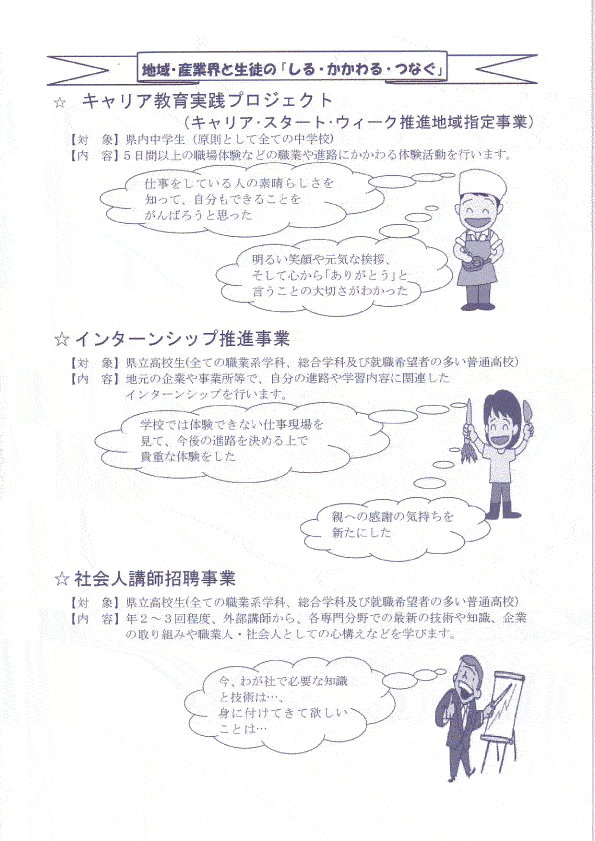 地域・産業界と生徒の「しる・かかわる・つなぐ」
☆ キャリア教育実践プロジェクト
（キャリア・スタート・ウィーク推進地域指定事業）
【対　象】県内中学生（原則として全ての中学校）
【内　容】５日間以上の職場体験などの職業や進路にかかわる体験活動を行います。
仕事をしている人の素晴らしさを
知って、自分もできることを
がんばろうと思った
明るい笑顔や元気な挨拶、
そして心から「ありがとう」と
言うことの大切さがわかった
☆インターンシップ推進事業
【対　象】県立高校生(全ての職業系学科、総合学科及び就職希望者の多い普通高校)
【内　容】地元の企業や事業所等で、自分の進路や学習内容に関連した
インターンシップを行います。
学校では体験できない仕事現場を
見て、今後の進路を決める上で
貴重な体験をした
親への感謝の気持ちを
新たにした
☆社会人講師招聘事業
【対　象】県立高校生(全ての職業系学科、総合学科及び就職希望者の多い普通高校)
【内　容】年２～３回程度、外部講師から、各専門分野での最新の技術や知識、企業
の取り組みや職業人・社会人としての心構えなどを学びます。
今、わが社で必要な知識
と技術は…、
身に付けてきて欲しい
ことは…